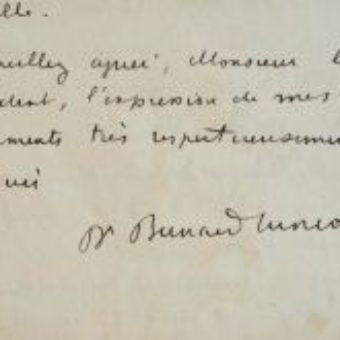 ille.
euillez agréer, Monsieur l
ident, l'expression de mes
iments très respectueusement
oués
Dr Bernard